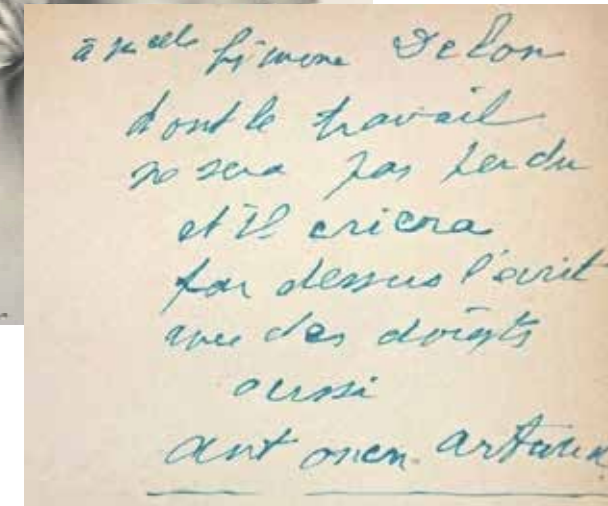 à Melle Simone Delon
dont le travail
ne sera pas perdu
et il criera
par dessus l'écrit
avec des doigts
aussi
antonin artaud